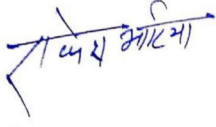 राकेश भाटिया